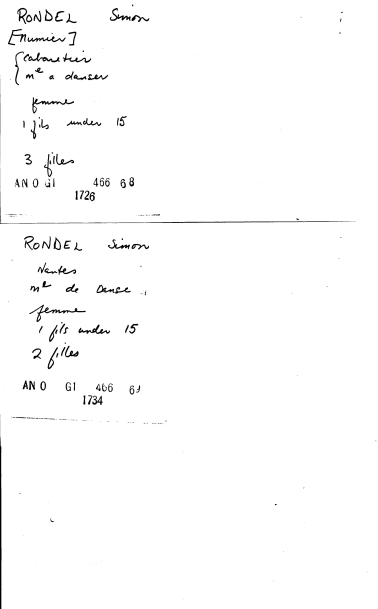 RONDEL Simon
[Numier]
{ Cabaretier
{ mᵉ a danser
femme
1 fils under 15
3 filles
AN O GI 466 68
1726
RONDEL Simon
Nantes
mᵉ de Danse
femme
1 fils under 15
2 filles
AN O GI 466
1734